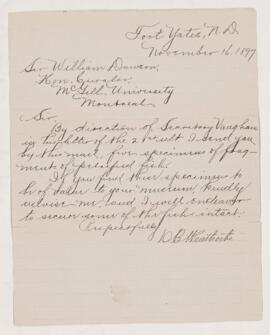 Fort Yates, N.D.
November 16, 1897
Sir William Dawson,
Hon. Curator,
McGill University
Montreal
Sir
By direction of Secretary Vaughan
in his letter of the 2nd ult I send you
by this mail, five specimens of frag-
ment of petrified fish.
If you find these specimens to
be of value to your museum, kindly
advise me and I will endeavor
to secure some of the fish intact.
Respectfully